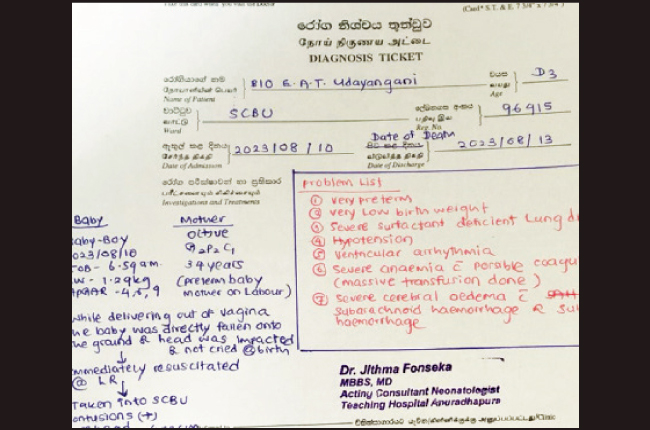 (Card* S.T. & E. 7 3/4" x 7 3/4")
රෝග නිශ්චය තුන්ටුව
நோய் நிருணய அட்டை
DIAGNOSIS TICKET
රෝගියාගේ නම
நோயாளியின் பெயர்
Name of Patient
B/O E.A.T. Udayangani
වයස
வயது
Age
D3
වාට්ටුව
வாட்டு
Ward
SCBU
ලේඛනගත අංකය
பதிவு இல
Reg. No.
96915
ඇතුල් කළ දිනය
சேர்ந்த திகதி
Date of Admission
2023/08/10
Date of Death
Date of Discharge
2023/08/13
රෝග පරීක්ෂාවන් හා ප්‍රතිකාර
Investigations and Treatments
Problem List
① very preterm
② very Low birth weight
③ severe surfactant deficient Lung
④ Hypotension
⑤ ventricular arrhythmia
⑥ severe anaemia c̄ possible
(massive transfusion done)
⑦ severe cerebral oedema c̄
subarachnoid haemorrhage &
haemorrhage
Baby
Mother
Baby-Boy
O+ve
2023/08/10
G2P2C1
TOB - 6.59am
34 years
BW - 1.29kg
(preterm baby
APGAR - 4,6,9
mother on Labour)
while delivering out of vagina
the baby was directly fallen onto
the ground & head was impacted
& not cried @ birth
↓
immediately resuscitated
@ LR
↓
Taken into SCBU
contusions (+)
Dr. Jithma Fonseka
MBBS, MD
Acting Consultant Neonatologist
Teaching Hospital Anuradhapura